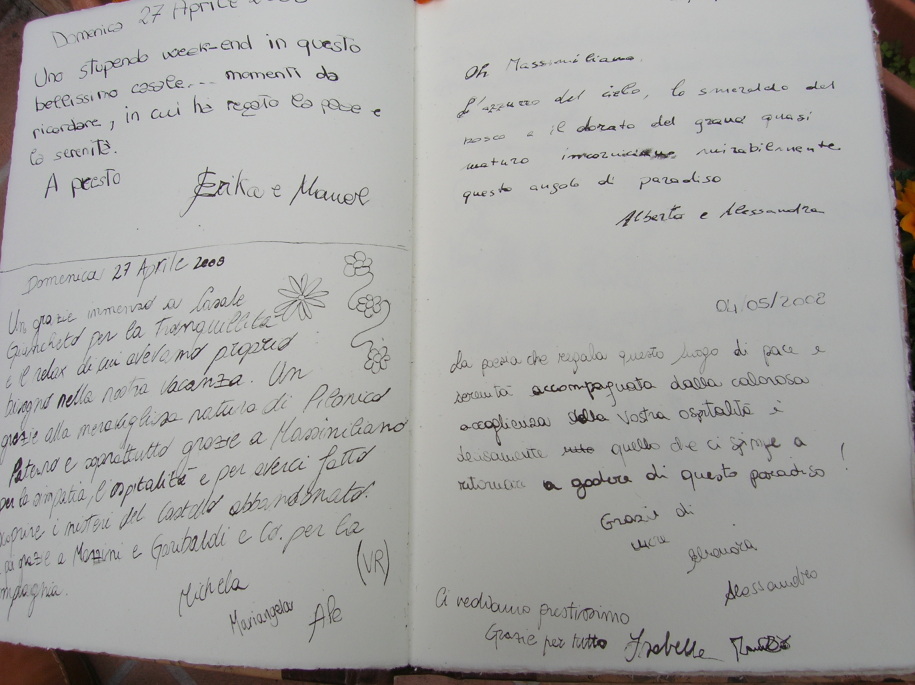 Domenica 27 Aprile 2008
Uno stupendo week-end in questo
bellissimo casale... momenti da
ricordare, in cui ho regato la pace e
la serenità.
A presto
Erika e Manuel
Domenica 27 Aprile 2008
Un grazie immenso a Casale
per la Tranquillità
e il relax di cui avevamo proprio
bisogno nella nostra vacanza. Un
grazie alla meravigliosa natura di
Paterno e soprattutto grazie a Massimiliano
per la simpatia, l'ospitalità e per averci fatto
i misteri del castello abbandonato.
grazie a Mazzini e Garibaldi e Co. per la
(VR)
Michela
Mariangela
Ale
Oh Massimiliano.
L'azzurro del cielo, lo smeraldo del
bosco e il dorato del grano quasi
maturo mirabilmente
questo angolo di paradiso
Alberto e Alessandra
04/05/2008
La poesia che regala questo luogo di pace e
serenità accompagnata dalla calorosa
accoglienza della vostra ospitalità è
decisamente quello che ci spinge a
ritornare a godere di questo paradiso!
Grazie di
cuore
Eleonora
Alessandro
Ci vediamo prestissimo
Grazie per tutto Isabella